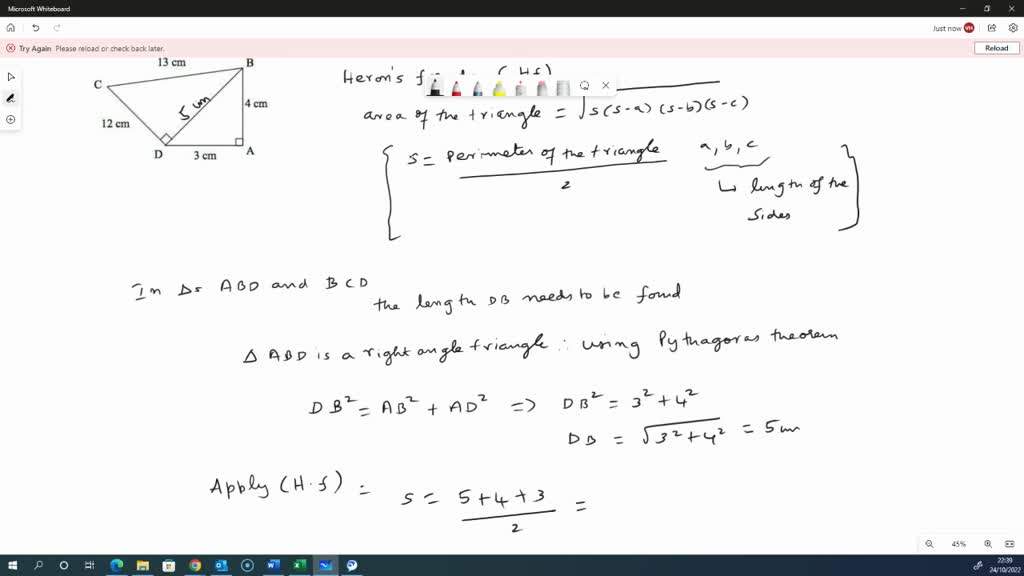 Microsoft Whiteboard
Just now VH
Try Again Please reload or check back later. Reload
13 cm
C B
5 cm
4 cm
12 cm
D 3 cm A
Heron's (H.f)
area of the triangle = √s(s-a)(s-b)(s-c)
s = Perimeter of the triangle / 2
a, b, c
↳ length of the
sides
In Δs ABD and BCD
the length DB needs to be found
Δ ABD is a right angle triangle ∴ using Pythagoras theorem
DB² = AB² + AD² => DB² = 3² + 4²
DB = √3² + 4² = 5 cm
Apply (H.f) =
s = 5+4+3 / 2 =
45%
22:39
24/10/2022